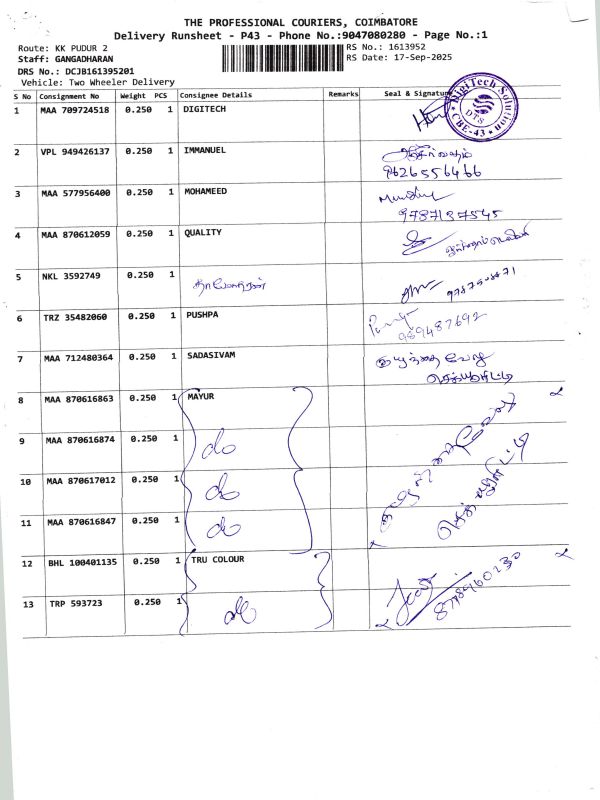 THE PROFESSIONAL COURIERS, COIMBATORE
Delivery Runsheet - P43 - Phone No.:9047080280 - Page No.:1
Route: KK PUDUR 2
RS No.: 1613952
Staff: GANGADHARAN
RS Date: 17-Sep-2025
DRS No.: DCJB161395201
Vehicle: Two Wheeler Delivery
S No Consignment No Weight PCS Consignee Details Remarks Seal & Signature
1 MAA 709724518 0.250 1 DIGITECH
DigiTech Solution
DTS
CBE-43
2 VPL 949426137 0.250 1 IMMANUEL
9626556466
3 MAA 577956400 0.250 1 MOHAMEED
9787137545
4 MAA 870612059 0.250 1 QUALITY
5 NKL 3592749 0.250 1 தாமோதரன்
6 TRZ 35482060 0.250 1 PUSHPA
989487692
7 MAA 712480364 0.250 1 SADASIVAM
8 MAA 870616863 0.250 1 MAYUR
9 MAA 870616874 0.250 1 do
10 MAA 870617012 0.250 1 do
11 MAA 870616847 0.250 1 do
12 BHL 100401135 0.250 1 TRU COLOUR
13 TRP 593723 0.250 1 do